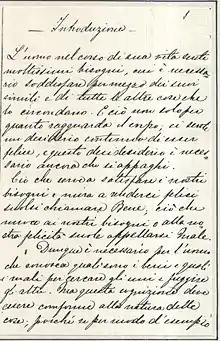 1
— Introduzione —
L'uomo nel corso di sua vita sente
moltissimi bisogni, cui è necessa
rio soddisfare per mezzo dei suoi
simili e di tutte le altre cose che
lo circondano. E ciò non solo per
quanto riguarda il corpo, si sente
un desiderio continuo di esser
felice, e questo desiderio è neces
sario ancora che si appaghi.
Ciò che giova a soddisfare i nostri
bisogni e mira a renderci felici
suolsi chiamare Bene, ciò che
nuoce ai nostri bisogni e alla no
stra felicità suole appellarsi Male.
Dunque è necessario per l'uomo
che conosca quali sono i beni e quali
i mali per cercare gli uni e fuggire
gli altri. Ma questa cognizione deve
essere conforme alla natura delle
cose, poichè se per modo d'esempio